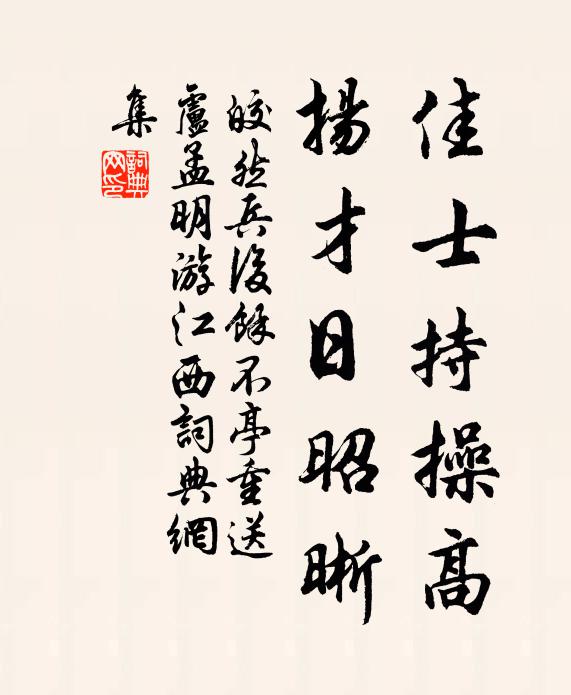 佳士持操高
揚才日昭晰
皎然兵後餘不亭重送
盧孟明游江西詞典網
集
詞典
网印